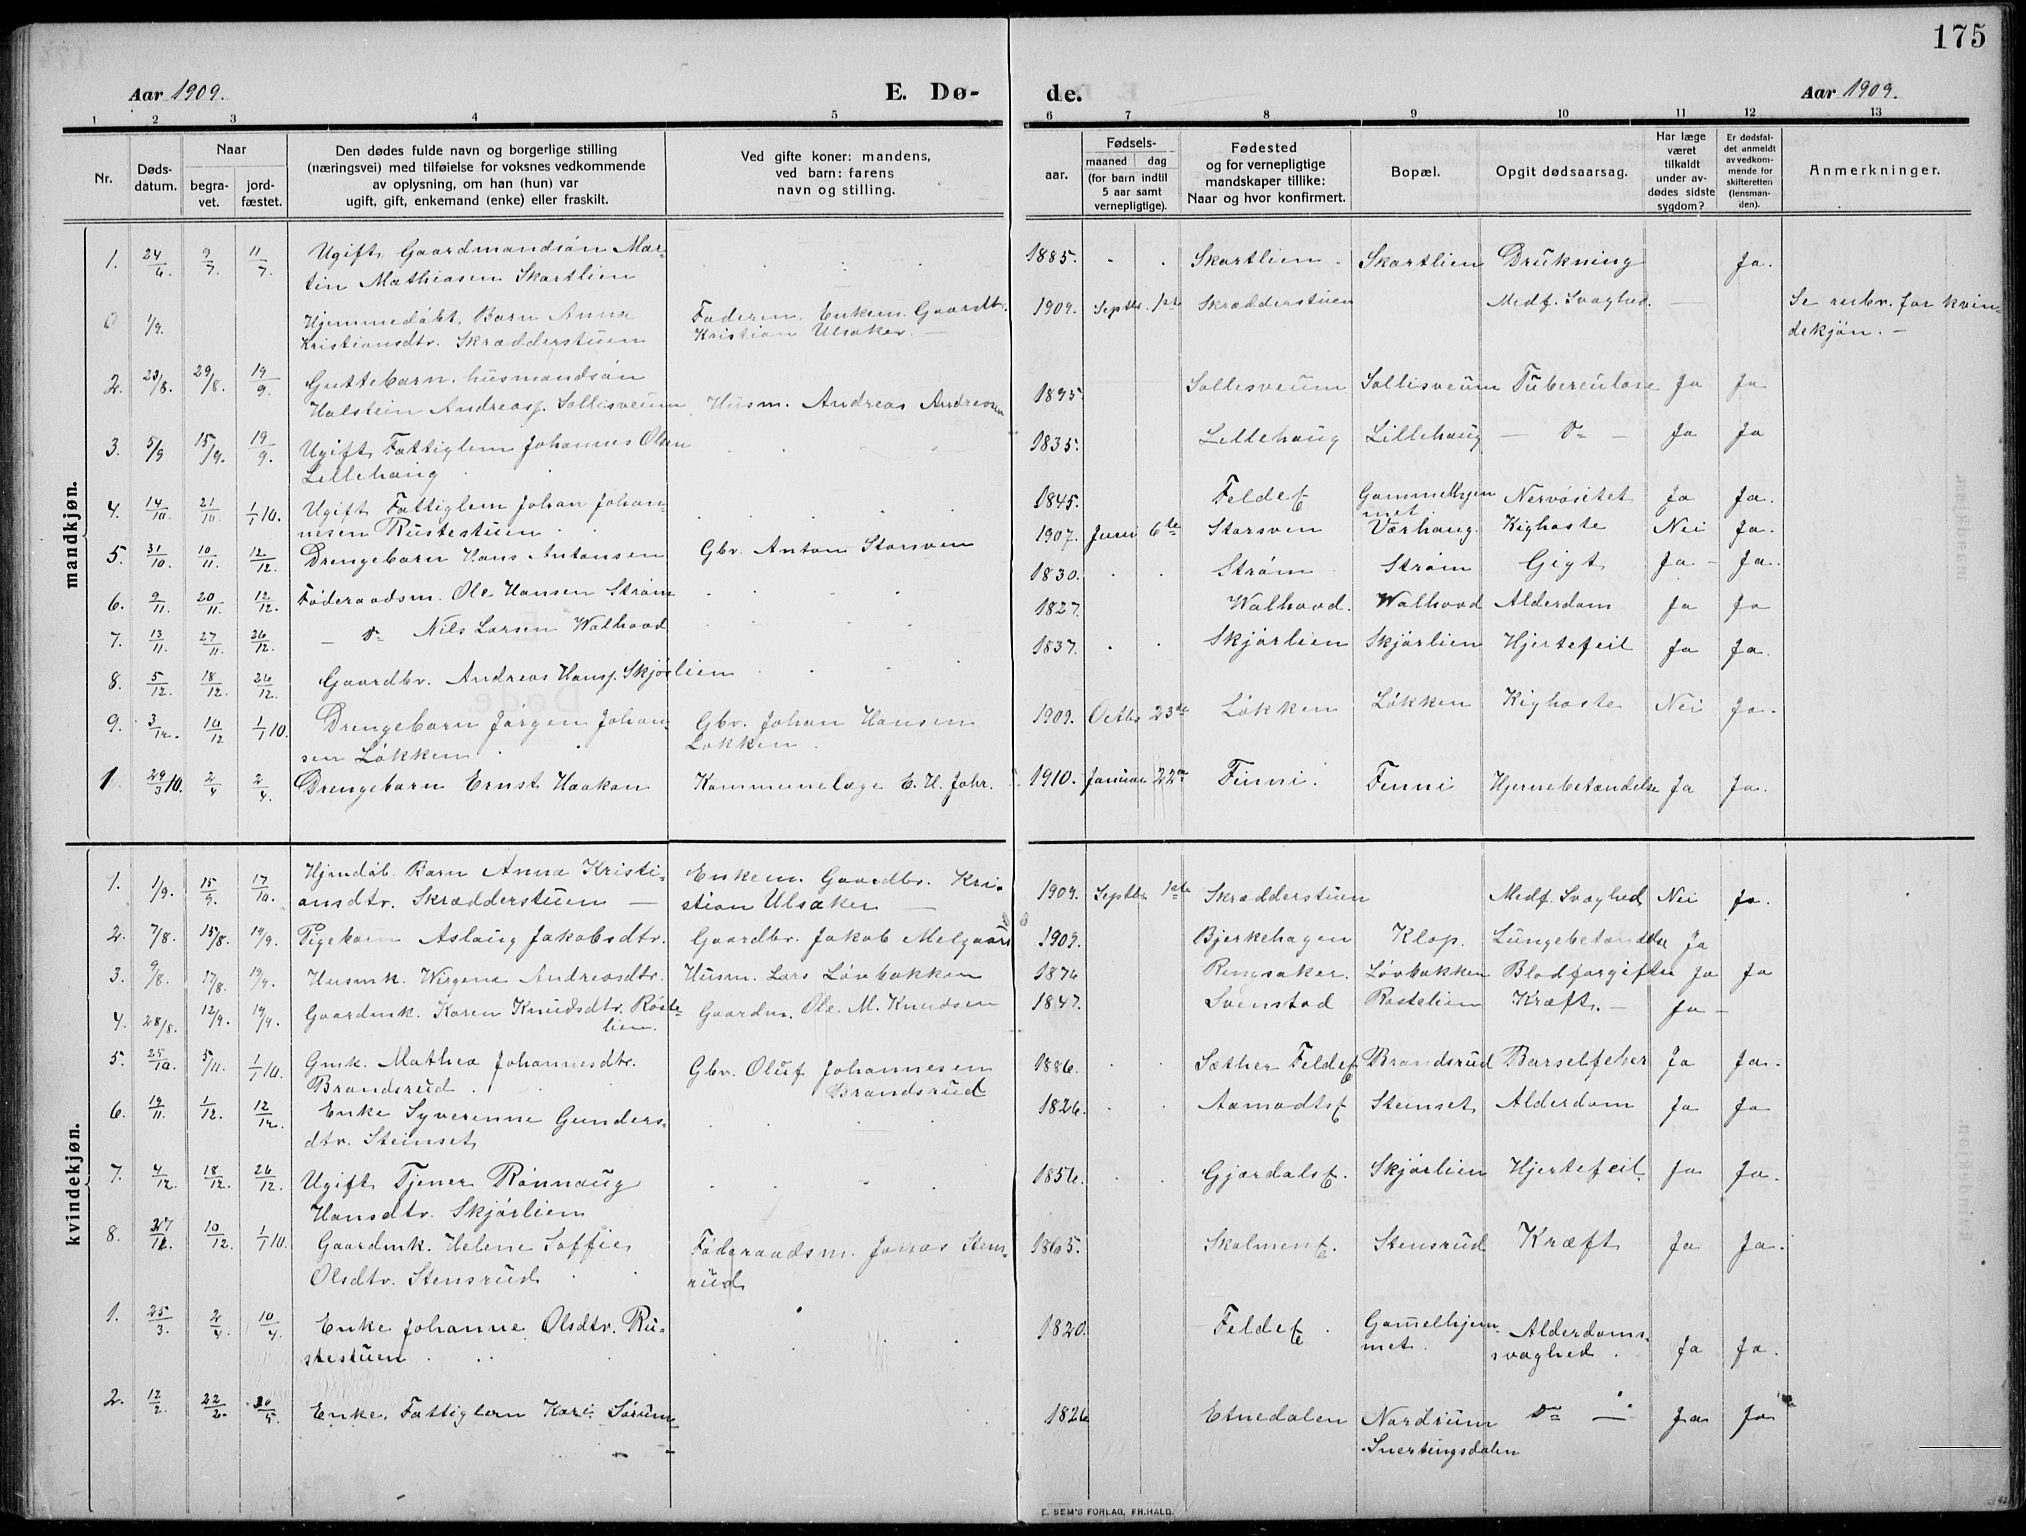 175
Aar 1909.
E. Dø-
de.
Aar 1909.
1 2 3 4 5 6 7 8 9 10 11 12 13
Nr.
Døds-
datum.
Naar
begra-
vet.
jord-
fæstet.
Den dødes fulde navn og borgerlige stilling
(næringsvei) med tilføielse for voksnes vedkommende
av oplysning, om han (hun) var
ugift, gift, enkemand (enke) eller fraskilt.
Ved gifte koner: mandens,
ved barn: farens
navn og stilling.
Fødsels-
aar.
maaned dag
(for barn indtil
5 aar samt
vernepligtige).
Fødested
og for vernepligtige
mandskaper tillike:
Naar og hvor konfirmert.
Bopæl.
Opgit dødsaarsag.
Har læge
været
tilkaldt
under av-
dødes sidste
sygdom?
Er dødsfal-
det anmeldt
av vedkom-
mende for
skifteretten
(lensman-
den).
Anmerkninger.
mandkjøn.
1. 24/6 9/7 11/7 Ugift Gaardmandsøn Mar-
tin Mathiasen Skartlien
1885. Skartlien Skartlien Drukning Ja.
0 1/9. Hjemmedøbt Barn Anna
Kristiansdtr. Skrædderstuen
Faderen Enkem. Gaardbr.
Kristian Ulsaker. —
1909. Septbr. 1ste Skrædderstuen Medf. Svaghed. — Se rubr. for kvin-
dekjøn. —
2. 23/8. 29/8. 19/9. Guttebarn husmandsøn
Halstein Andreasf. Sollisveum Husm. Andreas Andreasen
1895. Sollisveum Sollisveum Tuberculose Ja Ja
3. 5/9 15/9. 19/9. Ugift Fattiglem Johannes Olsen
Lillehaug
1835. Lillehaug Lillehaug — Do — Ja Ja
4. 14/10. 21/10 1/1 10. Ugift Fattiglem Johan Johan-
nesen Rustestuen
1845. Feldef Gammelhjem
met Nervøsitet Ja Ja.
5. 31/10 10/11. 12/12. Drengebarn Hans Antonsen Gbr. Anton Storsven
1907. Juni 6te Storsven Værhaug. Kighoste Nei Ja.
6. 9/11. 20/11. 12/12. Føderaadsm. Ole Hansen Strøm
1830. Strøm Strøm Gigt Ja — Ja.
7. 13/11. 27/11. 26/12. — Do Nils Larsen Walhovd
1827. Walhovd. Walhovd Alderdom Ja Ja
8. 5/12. 18/12. 26/12. Gaardbr. Andreas Hansf. Skjørlien
1837. Skjørlien Skjørlien Hjertefeil Ja Ja.
9. 3/12. 10/12 1/1 10. Drengebarn Jørgen Johan-
sen Løkken
Gbr. Johan Hansen
Løkken
1909. Octbr 23de Løkken Løkken Kighoste Nei Ja.
1. 29/3 10. 2/4 2/4. Drengebarn Ernst Haakon Kommunelæge E. H. Johr.
1910. Januar 22de Finni. Finni Hjernebetændelse Ja Ja.
kvindekjøn.
1. 1/9. 15/9. 17/10. Hjmdøb. Barn Anna Kristi-
ansdtr. Skrædderstuen —
Enkem. Gaardbr. Kri-
stian Ulsaker —
1909. Septbr 1ste Skrædderstuen Medf. Svaghed Nei Ja.
2. 7/8. 15/8. 19/9. Pigebarn Aslaug Jakobsdtr. Gaardbr. Jakob Melgaard
1909. Bjerkehagen Klop. Lungebetændelse Ja
3. 9/8. 17/8. 19/9. Husmk. Wirgena Andreasdtr. Husm. Lars Løvbakken
1876 Ringsaker. Løvbakken Blodforgiftn Ja Ja
4. 28/8. 12/9. 19/9. Gaardmk. Karen Knudsdtr. Røste-
lien.
Gaardm. Ole M. Knudsen
1847. Svenstad Røstelien Kræft. — Ja —
5. 25/10. 5/11. 1/1 10. Gmk. Mathea Johannesdtr.
Brandsrud
Gbr. Oluf Johannesen
Brandsrud
1886. Sæther Feldef Brandsrud Barselfeber Ja Ja.
6. 19/11. 1/12. 12/12. Enke Syverenne Gunders-
dtr. Steinset
1826. Aamodtsf Steinset Alderdom Ja Ja
7. 4/12. 18/12. 26/12. Ugift Tjener Rønnaug
Hansdtr. Skjørlien
1856. Gjærdalsf. Skjørlien Hjertefeil. Ja Ja.
8. 10/12. 1/1 10. Gaardmk. Helene Soffie
Olsdtr. Stensrud
Føderaadsm. Jonas Stens-
rud
1865. Skolmenf. Stensrud Kræft Ja Ja.
1. 25/3. 2/4. 10/4. Enke Johanne Olsdtr. Ru-
stestuen
1820. Feldef. Gamelhjem-
met. Alderdoms-
svaghed. Ja Ja.
2. 12/2. 22/2. Enke. Fattiglem Kari Sørum
1826 Etnedalen Nordrum
Snertingsdalen Do — Ja Ja
E. SEM'S FORLAG, FR.HALD.